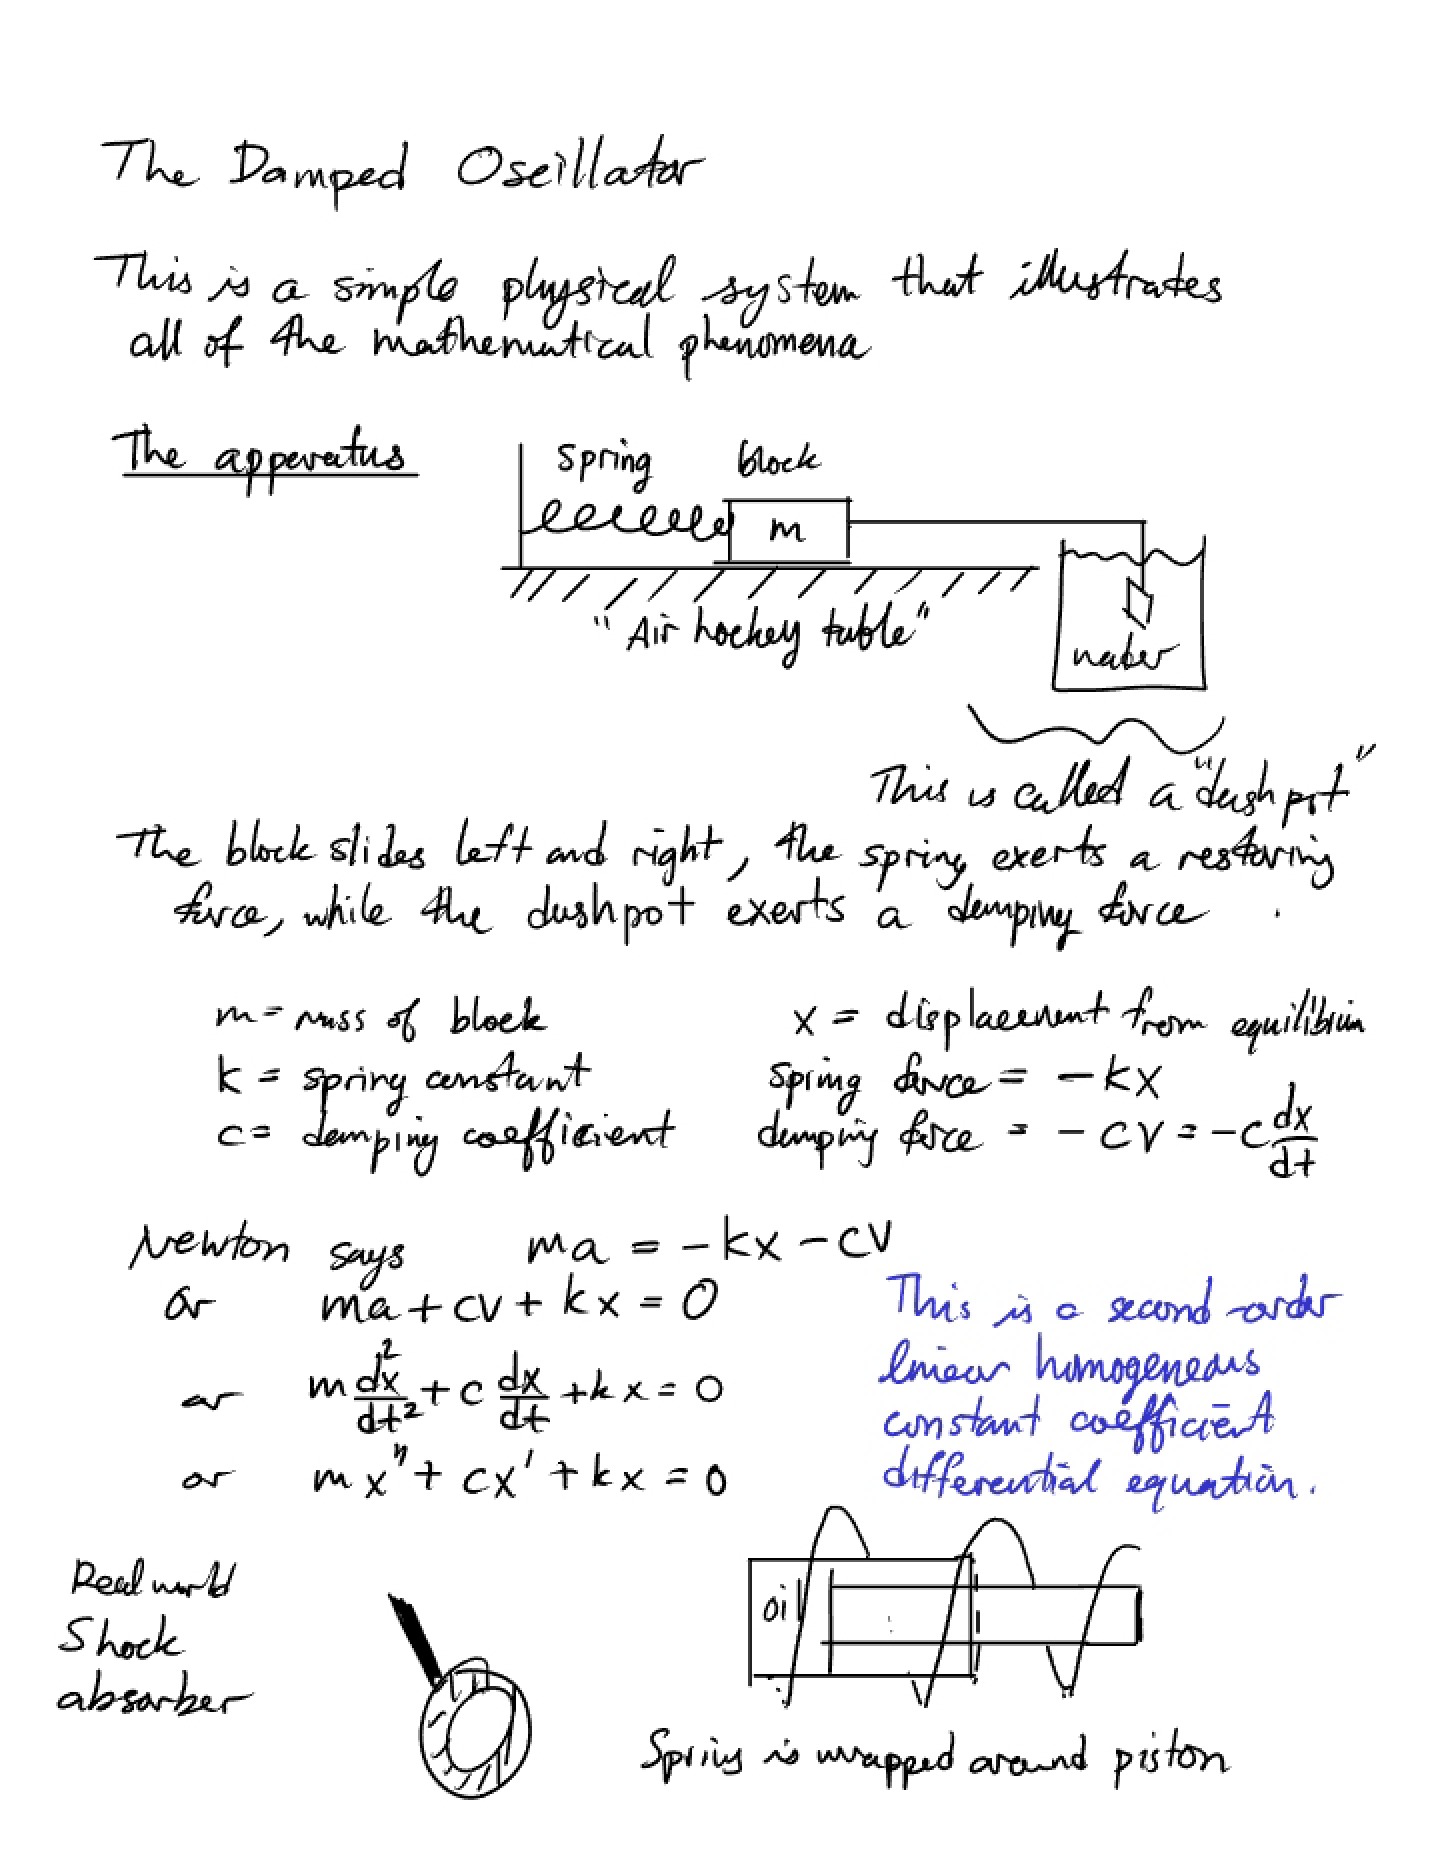 The Damped Oscillator
This is a simple physical system that illustrates
all of the mathematical phenomena
The apparatus
spring block
m
"Air hockey table"
water
This is called a "dashpot"
The block slides left and right, the spring exerts a restoring
force, while the dashpot exerts a damping force.
m = mass of block
x = displacement from equilibrium
k = spring constant
spring force = -kx
c = damping coefficient
damping force = -cv = -c dx/dt
Newton says ma = -kx - cv
or ma + cv + kx = 0
or m d²x/dt² + c dx/dt + kx = 0
or mx" + cx' + kx = 0
This is a second-order
linear homogeneous
constant coefficient
differential equation.
Real world
Shock
absorber
oil
Spring is wrapped around piston